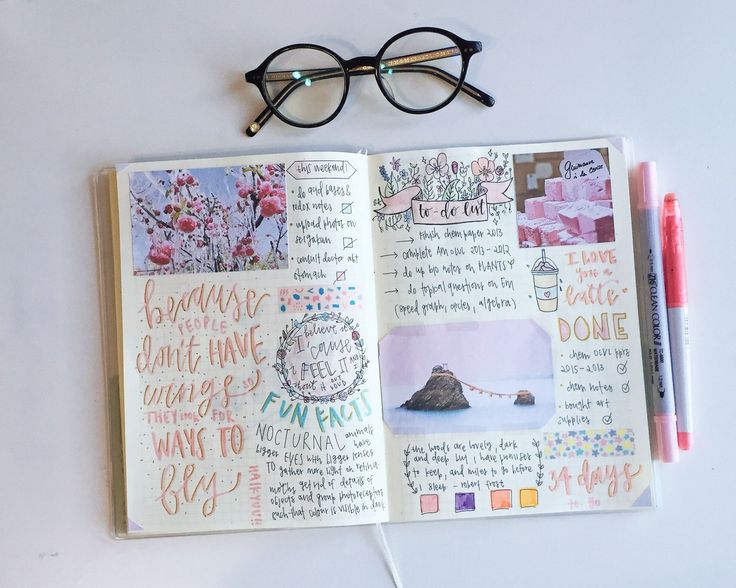 this weekend!
• do acid bases &
redox notes
• upload photos on
seigakuin
• consult doctor abt
stomach
because
PEOPLE
don't HAVE
wings SO
THEY LOOK FOR
WAYS TO
fly
HAIKYUU!!
I believe it
'cause
I FEEL IT AND I
shout it OUT
LOUD
FUN FACTS
NOCTURNAL animals
have
bigger EYES with bigger lenses
TO gather more light on retina.
mostly get rid of details of
objects and group photoreceptors
each that colour is visible in dark.
to-do list
→ finish chem paper 2013
→ complete Am OLVL 2013 - 2012
→ do up bio notes on PLANTS
→ do topical questions on Em
(speed graph, circles, algebra)
Guimauve
à la cerise
I LOVE
you a
latte
DONE
• chem OLVL pprs
2015-2013
• chem notes
• bought art
supplies
the woods are lovely, dark
and deep but i have promises
to keep, and miles to go before
I sleep - robert frost
34 days
to go
CLEAN COLOR